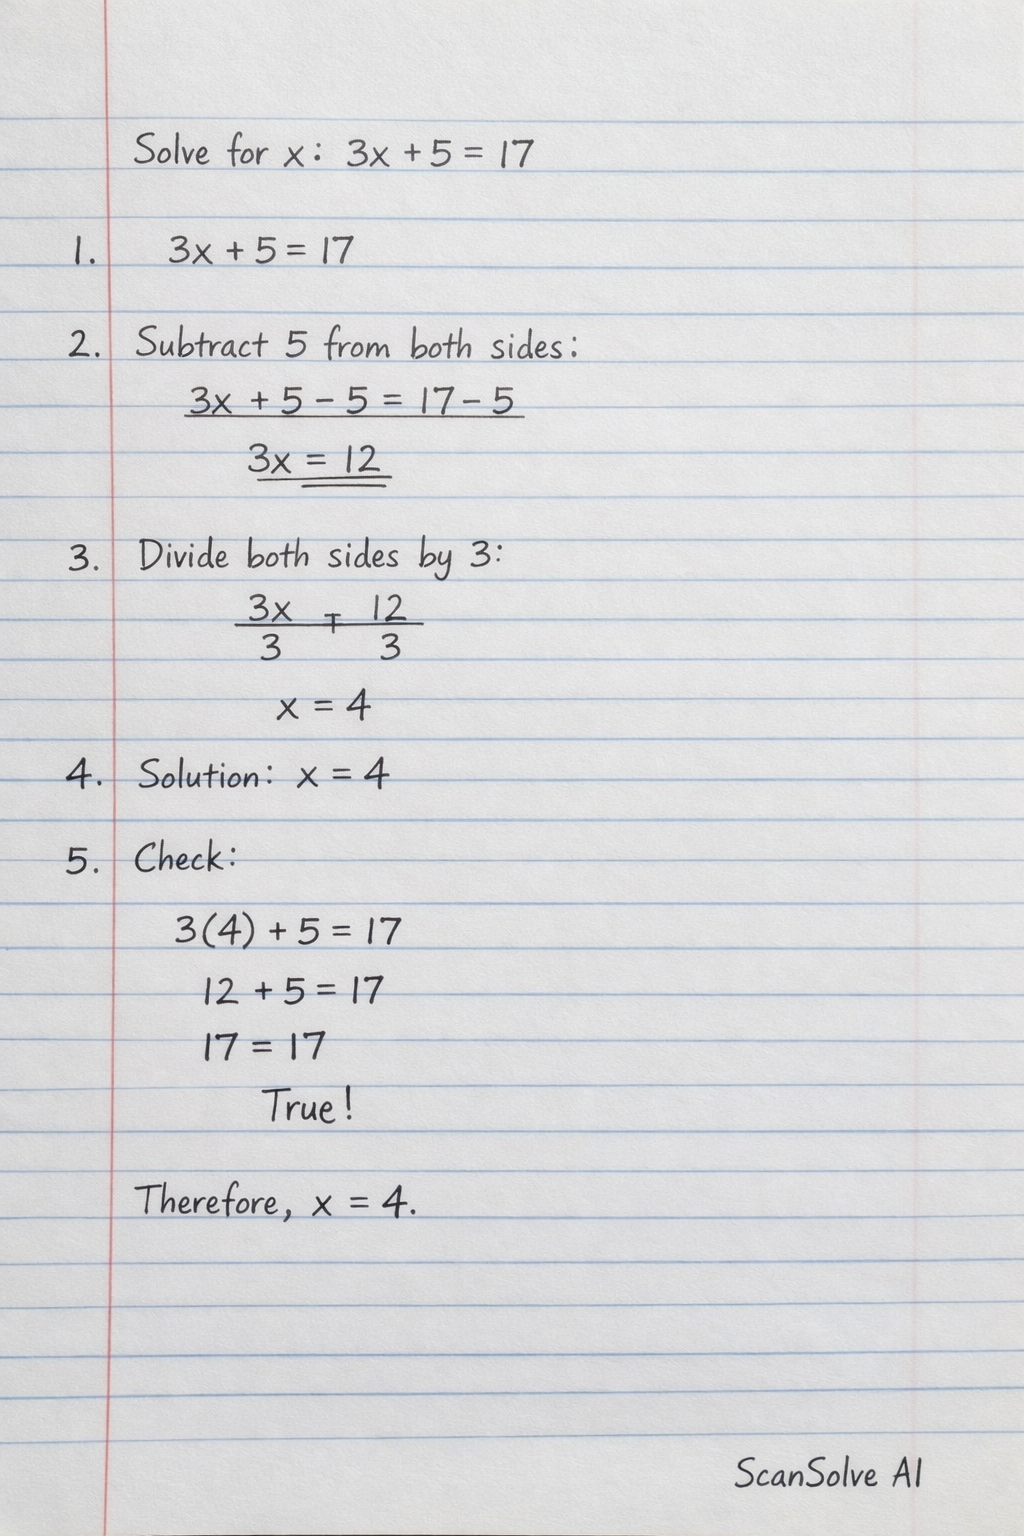 Solve for x: 3x + 5 = 17
1. 3x + 5 = 17
2. Subtract 5 from both sides:
3x + 5 - 5 = 17 - 5
3x = 12
3. Divide both sides by 3:
3x/3 = 12/3
x = 4
4. Solution: x = 4
5. Check:
3(4) + 5 = 17
12 + 5 = 17
17 = 17
True!
Therefore, x = 4.
ScanSolve AI